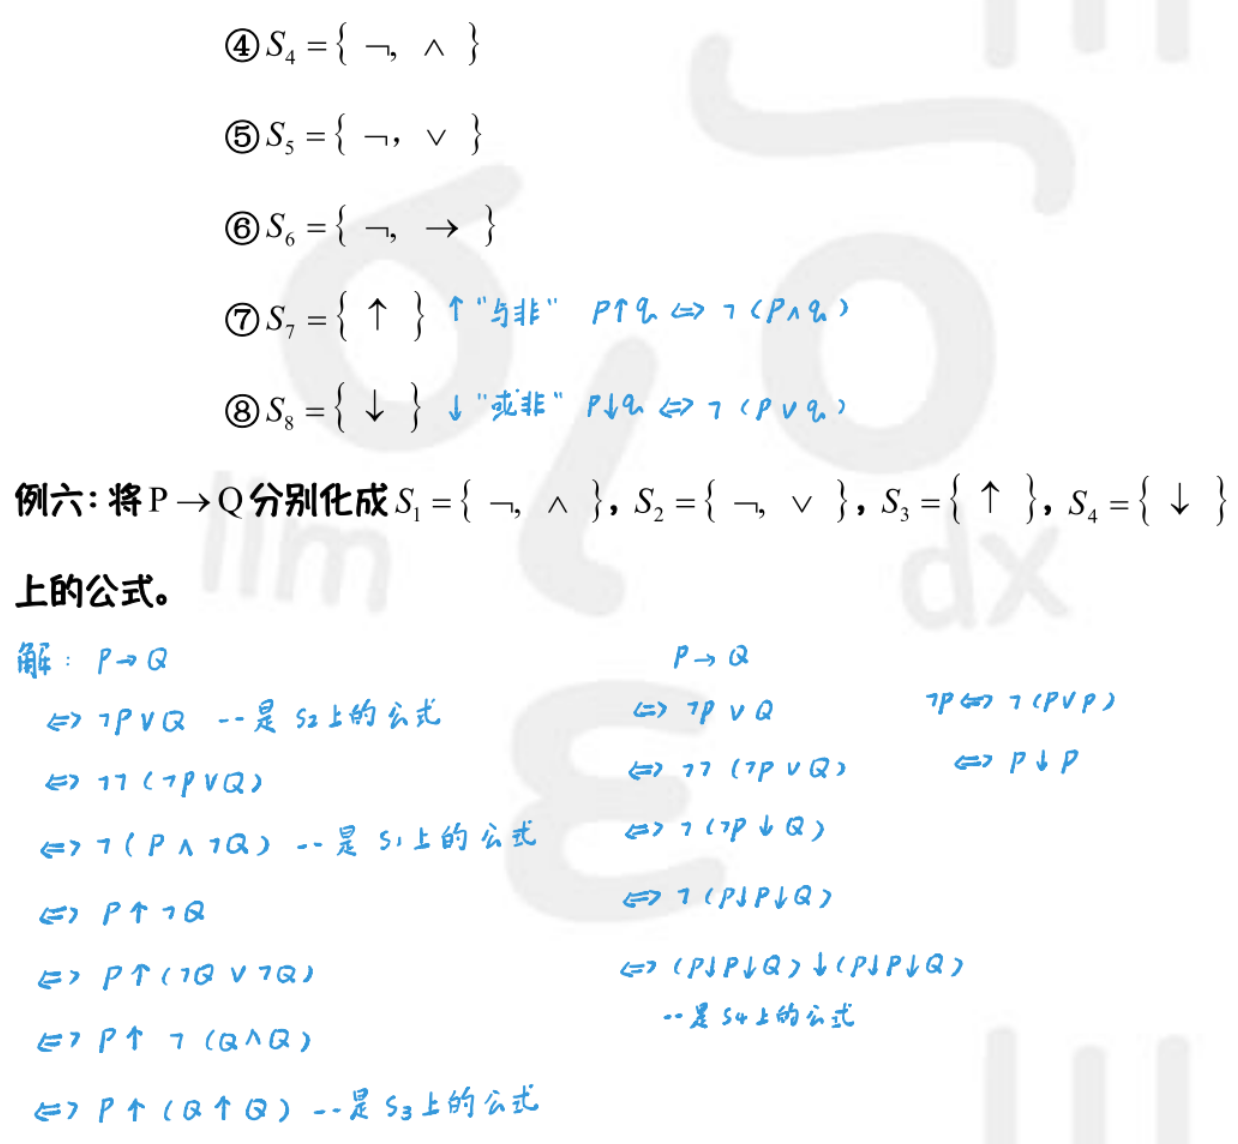 ④ S₄ = { ¬, ∧ }
⑤ S₅ = { ¬, ∨ }
⑥ S₆ = { ¬, → }
⑦ S₇ = { ↑ } ↑ "与非" P↑q ⇔ ¬(P∧q)
⑧ S₈ = { ↓ } ↓ "或非" P↓q ⇔ ¬(P∨q)
例六：将 P → Q 分别化成 S₁ = { ¬, ∧ }，S₂ = { ¬, ∨ }，S₃ = { ↑ }，S₄ = { ↓ }
上的公式。
解： P→Q
⇔ ¬P∨Q --是 S₂上的公式
⇔ ¬¬(¬P∨Q)
⇔ ¬(P∧¬Q) --是 S₁上的公式
⇔ P↑¬Q
⇔ P↑(¬Q∨¬Q)
⇔ P↑ ¬(Q∧Q)
⇔ P↑(Q↑Q) --是 S₃上的公式
P→Q
⇔ ¬P∨Q
⇔ ¬¬(¬P∨Q)
⇔ ¬(¬P↓Q)
⇔ ¬(P↓P↓Q)
⇔ (P↓P↓Q)↓(P↓P↓Q)
--是 S₄上的公式
¬P ⇔ ¬(P∨P)
⇔ P↓P
lim
dx